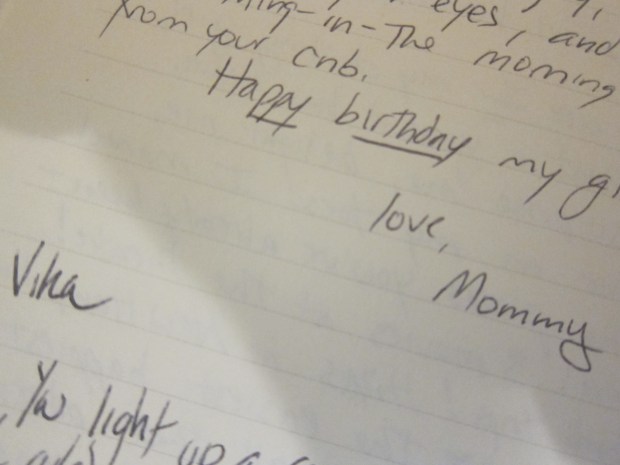 eyes,
-in-The morning
from your crib.
Happy birthday my
love,
Mommy
Vika
You light up a